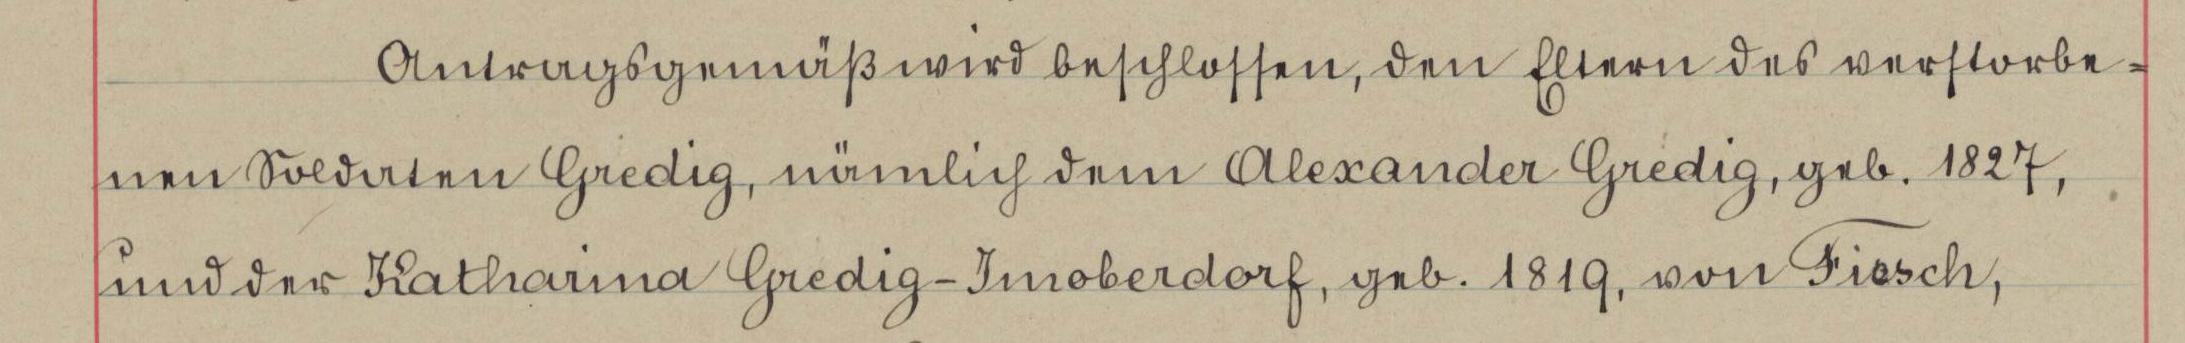 Antragsgemäß wird beschlossen, den Eltern des verstorbe=
nen Soldaten Gredig, nämlich dem Alexander Gredig, geb. 1827,
und der Katharina Gredig-Imoberdorf, geb. 1819, von Fiesch,